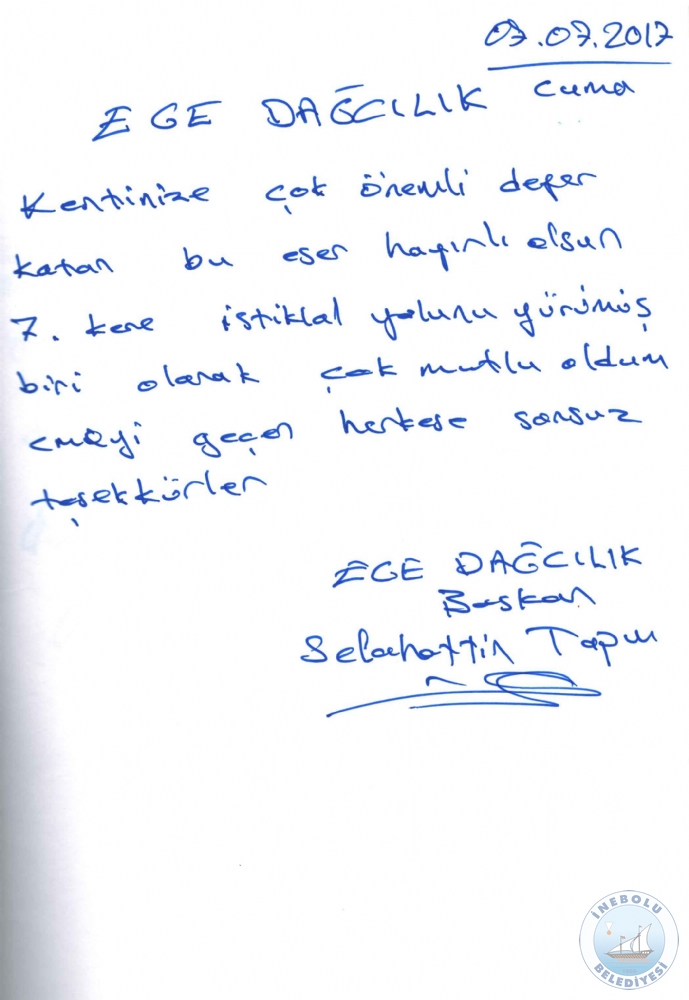 07.07.2017
Cuma
EGE DAĞCILIK
Kentinize çok önemli değer
katan bu eser hayırlı olsun
7. kere istiklal yolunu yürümüş
biri olarak çok mutlu oldum
emeyi geçen herkese sonsuz
teşekkürler
EGE DAĞCILIK
Başkan
Selahattin
İNEBOLU
BELEDİYESİ